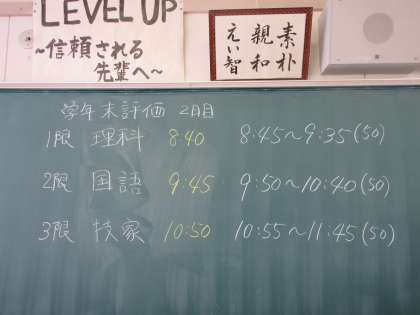 LEVEL UP
~信頼される
先輩へ~
素朴
親和
えい智
学年末評価 2日目
1限 理科 8:40 8:45~9:35(50)
2限 国語 9:45 9:50~10:40(50)
3限 技家 10:50 10:55~11:45(50)